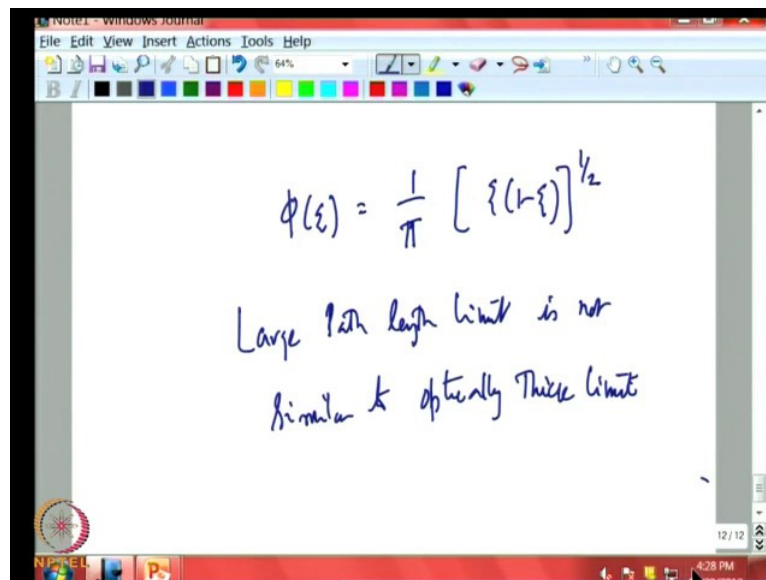 Note1 - Windows Journal
File Edit View Insert Actions Tools Help
64%
B I
φ(ξ) = 1/π [ξ(1-ξ)]^1/2
Large Path length limit is not
similar to optically Thick limit
12 / 12
NPTEL
4:28 PM